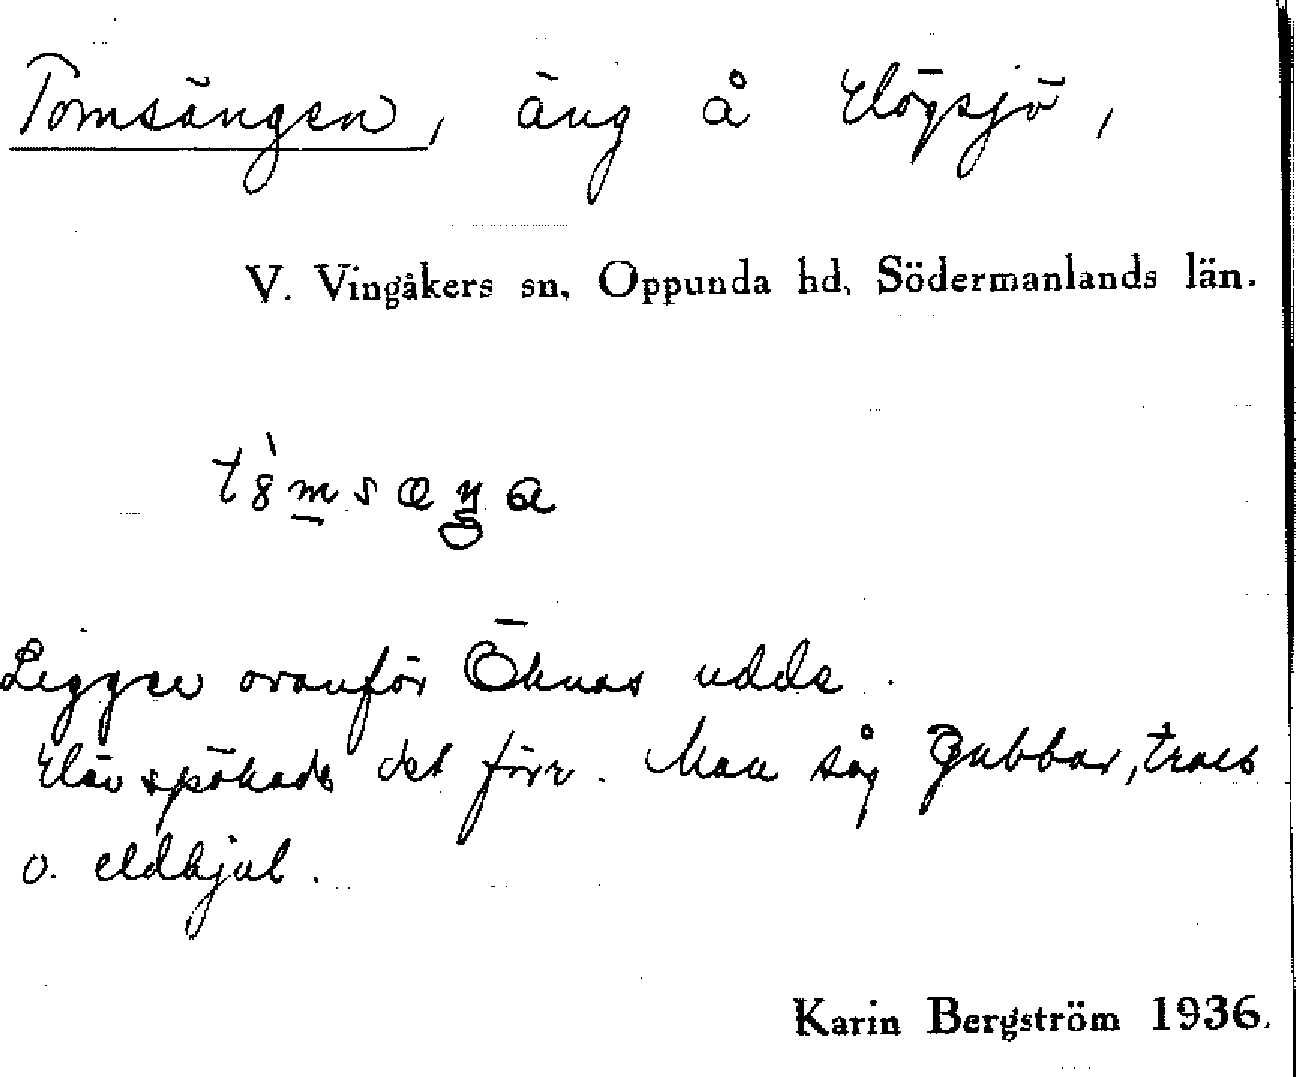 Tomsängen, äng å Högsjö,
V. Vingåkers sn, Oppunda hd, Södermanlands län.
Ligger ovanför Öknas udde.
Här spökade det förr. Man såg gubbar, trass
o. eldhjul.
Karin Bergström 1936.